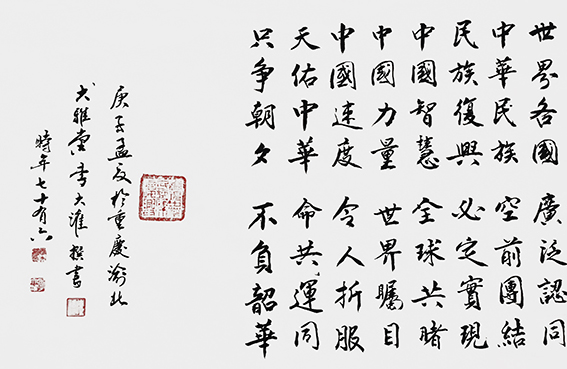 世界各國 廣泛認同
中華民族 空前團結
民族復興 必定實現
中國智慧 全球共睹
中國力量 世界矚目
中國速度 令人折服
天佑中華 命共運同
只争朝夕 不負韶華
庚子孟夏於重慶渝北
大雅堂李大淮撰書
時年七十有六